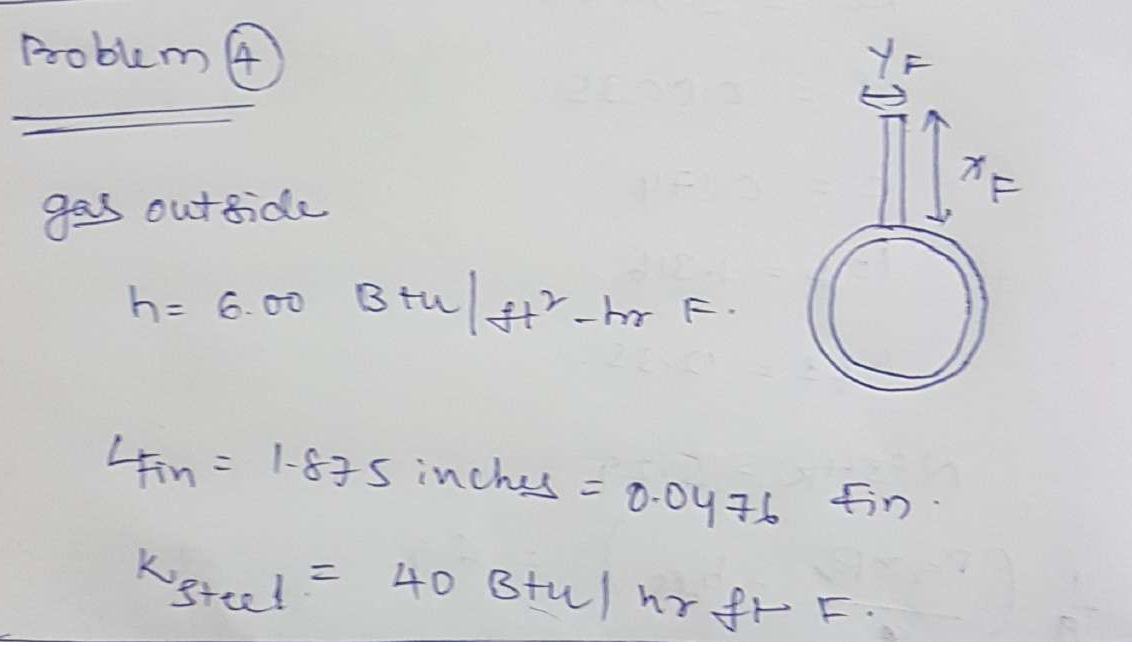 Problem 4
YF
xF
gas outside
h = 6.00 Btu/ft²-hr F.
Lfin = 1.875 inches = 0.0476 fin.
Ksteel = 40 Btu/hr ft F.